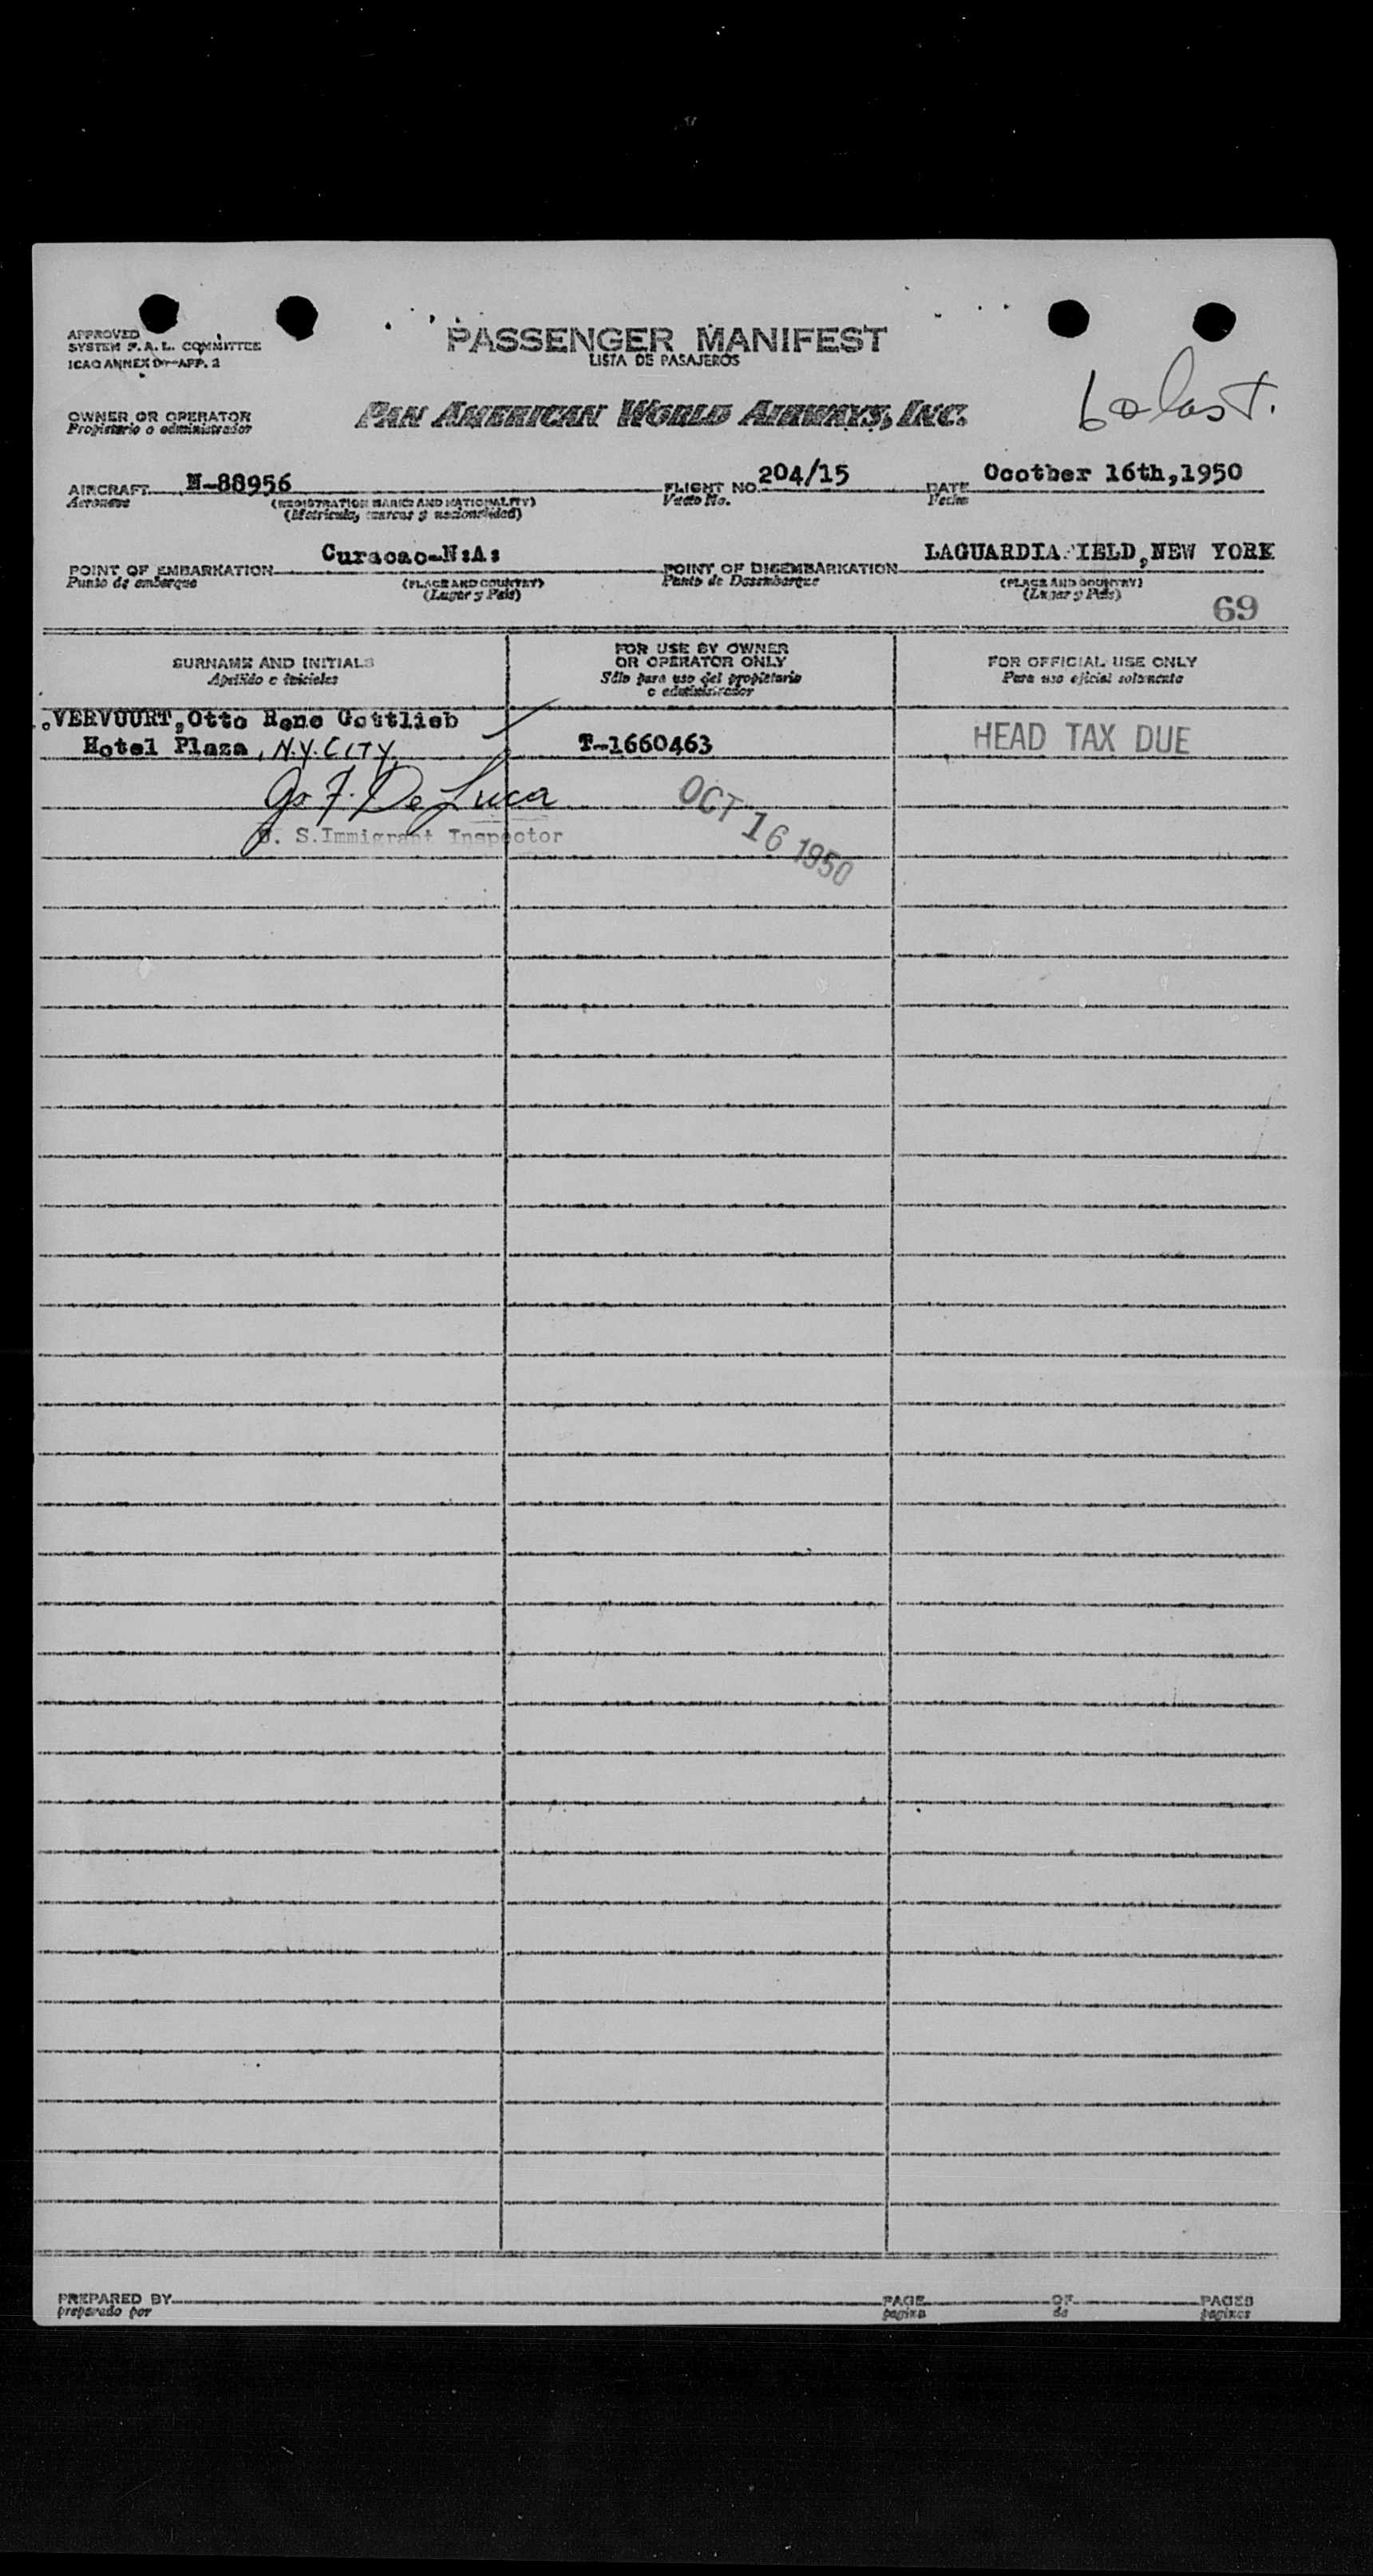 APPROVED
SYSTEM F.A.L. COMMITTEE
ICAO ANNEX 9—APP. 2
PASSENGER MANIFEST
LISTA DE PASAJEROS
OWNER OR OPERATOR
Propietario o administrador
PAN AMERICAN WORLD AIRWAYS, INC.
AIRCRAFT N-88956
Aeronave
(REGISTRATION MARKS AND NATIONALITY)
(Matrícula, marcas y nacionalidad)
FLIGHT NO. 204/15
Vuelo No.
DATE Ocotber 16th,1950
Fecha
POINT OF EMBARKATION Curacao-N:A:
Punto de embarque
(PLACE AND COUNTRY)
(Lugar y País)
POINT OF DISEMBARKATION LAGUARDIA FIELD, NEW YORK
Punto de Desembarque
(PLACE AND COUNTRY)
(Lugar y País)
69
SURNAME AND INITIALS
Apellido e iniciales
FOR USE BY OWNER
OR OPERATOR ONLY
Sólo para uso del propietario
o administrador
FOR OFFICIAL USE ONLY
Para uso oficial solamente
VERVUURT, Otto Rene Gottlieb
Hotel Plaza, N.Y. CITY
T-1660463
HEAD TAX DUE
Jos F. De Luca
U. S. Immigrant Inspector
OCT 16 1950
PREPARED BY
preparado por
PAGE OF PAGES
pagina de paginas